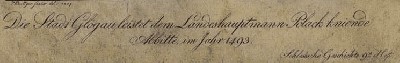 Die Stadt Glogau leistet dem Landeshauptmann Polack knieende
Abbitte im Jahr 1493.
Schlesische Geschichte 9tes Heft.